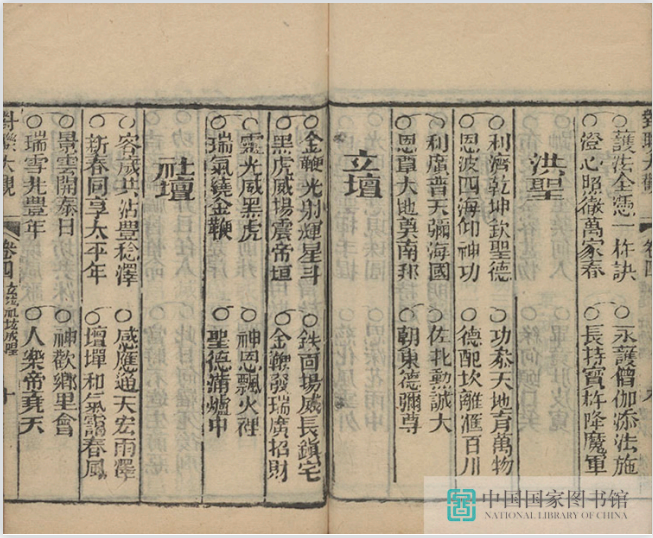 對聯大觀 卷四
○護法全憑一杵訣 ○永護僧伽添法施
○澄心照徹萬家春 ○長持寶杵降魔軍
洪聖
○利濟乾坤欽聖德 ○功叅天地育萬物
○恩波四海仰神功 ○德配坎離滙百川
○利廣普天彌海國 ○佐北勲誠大
○恩覃大地奠南邦 ○朝東德彌尊
立壇
○金鞭光射輝星斗 ○鉄面揚威長鎮宅
○黑虎威揚震帝垣 ○金鞭發瑞廣招財
○靈光威黑虎 ○神恩飄火裡
○瑞氣繞金鞭 ○聖德蒲爐中
社壇
○客歲共沾豐稔澤 ○感應通天宏雨澤
○新春同享太平年 ○壇墠和氣靄春風
○景雲開泰日 ○神歡鄉里會
○瑞雪兆豐年 ○人樂帝堯天
對聯大觀 卷四 立壇社壇 十
中国国家图书馆
NATIONAL LIBRARY OF CHINA